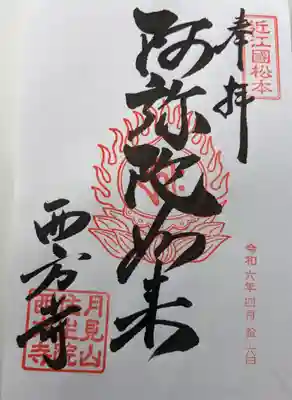 近江國松本
奉拝
阿弥陀如来
西方寺
月見山
往生院
西方寺
令和六年四月